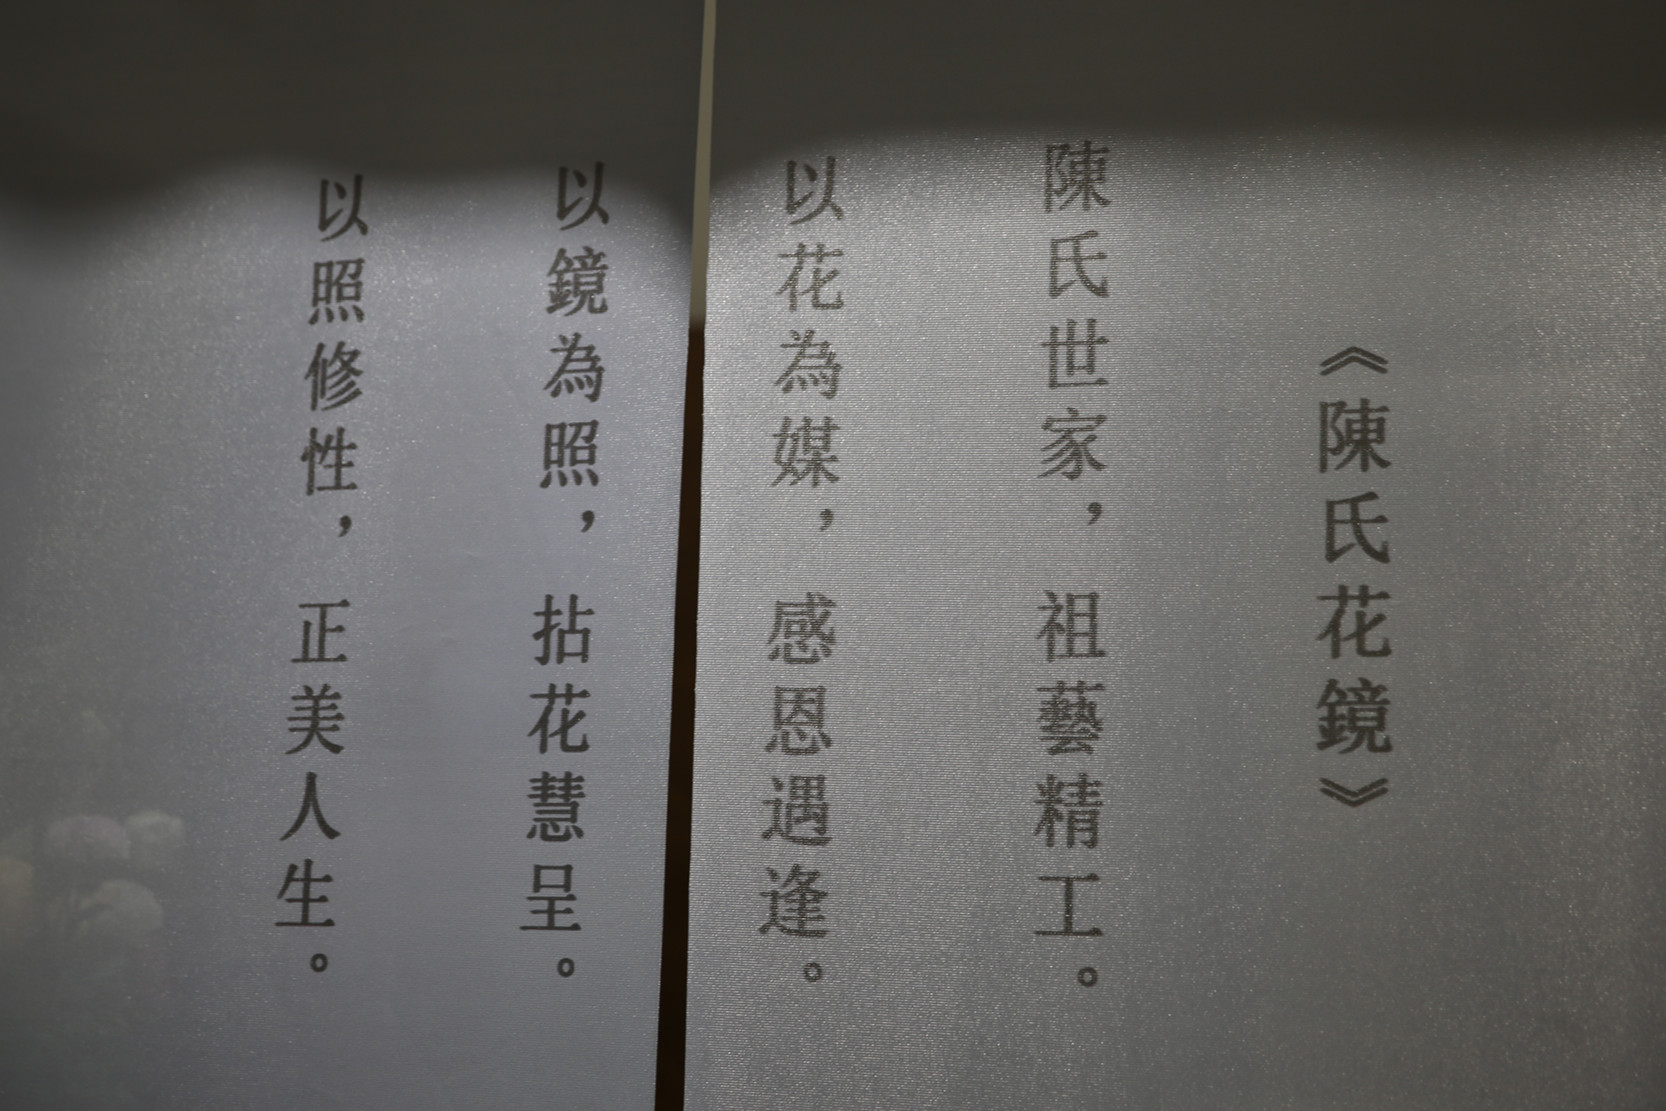 《陳氏花鏡》
陳氏世家，祖藝精工。
以花為媒，感恩遇逢。
以鏡為照，拈花慧呈。
以照修性，正美人生。